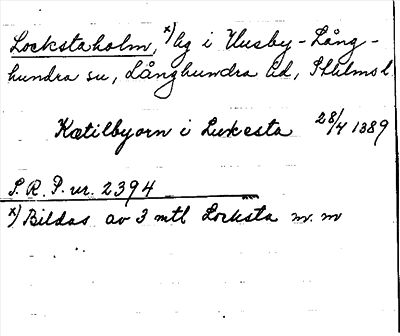 Lockstaholm, x) lg i Husby-Lång-
hundra sn, Långhundra hd, Sthlms l.
Kætilbyorn i Lukesta 28/4 1389
S.R.P. nr. 2394
x) Bildas av 3 mtl Locksta m.m